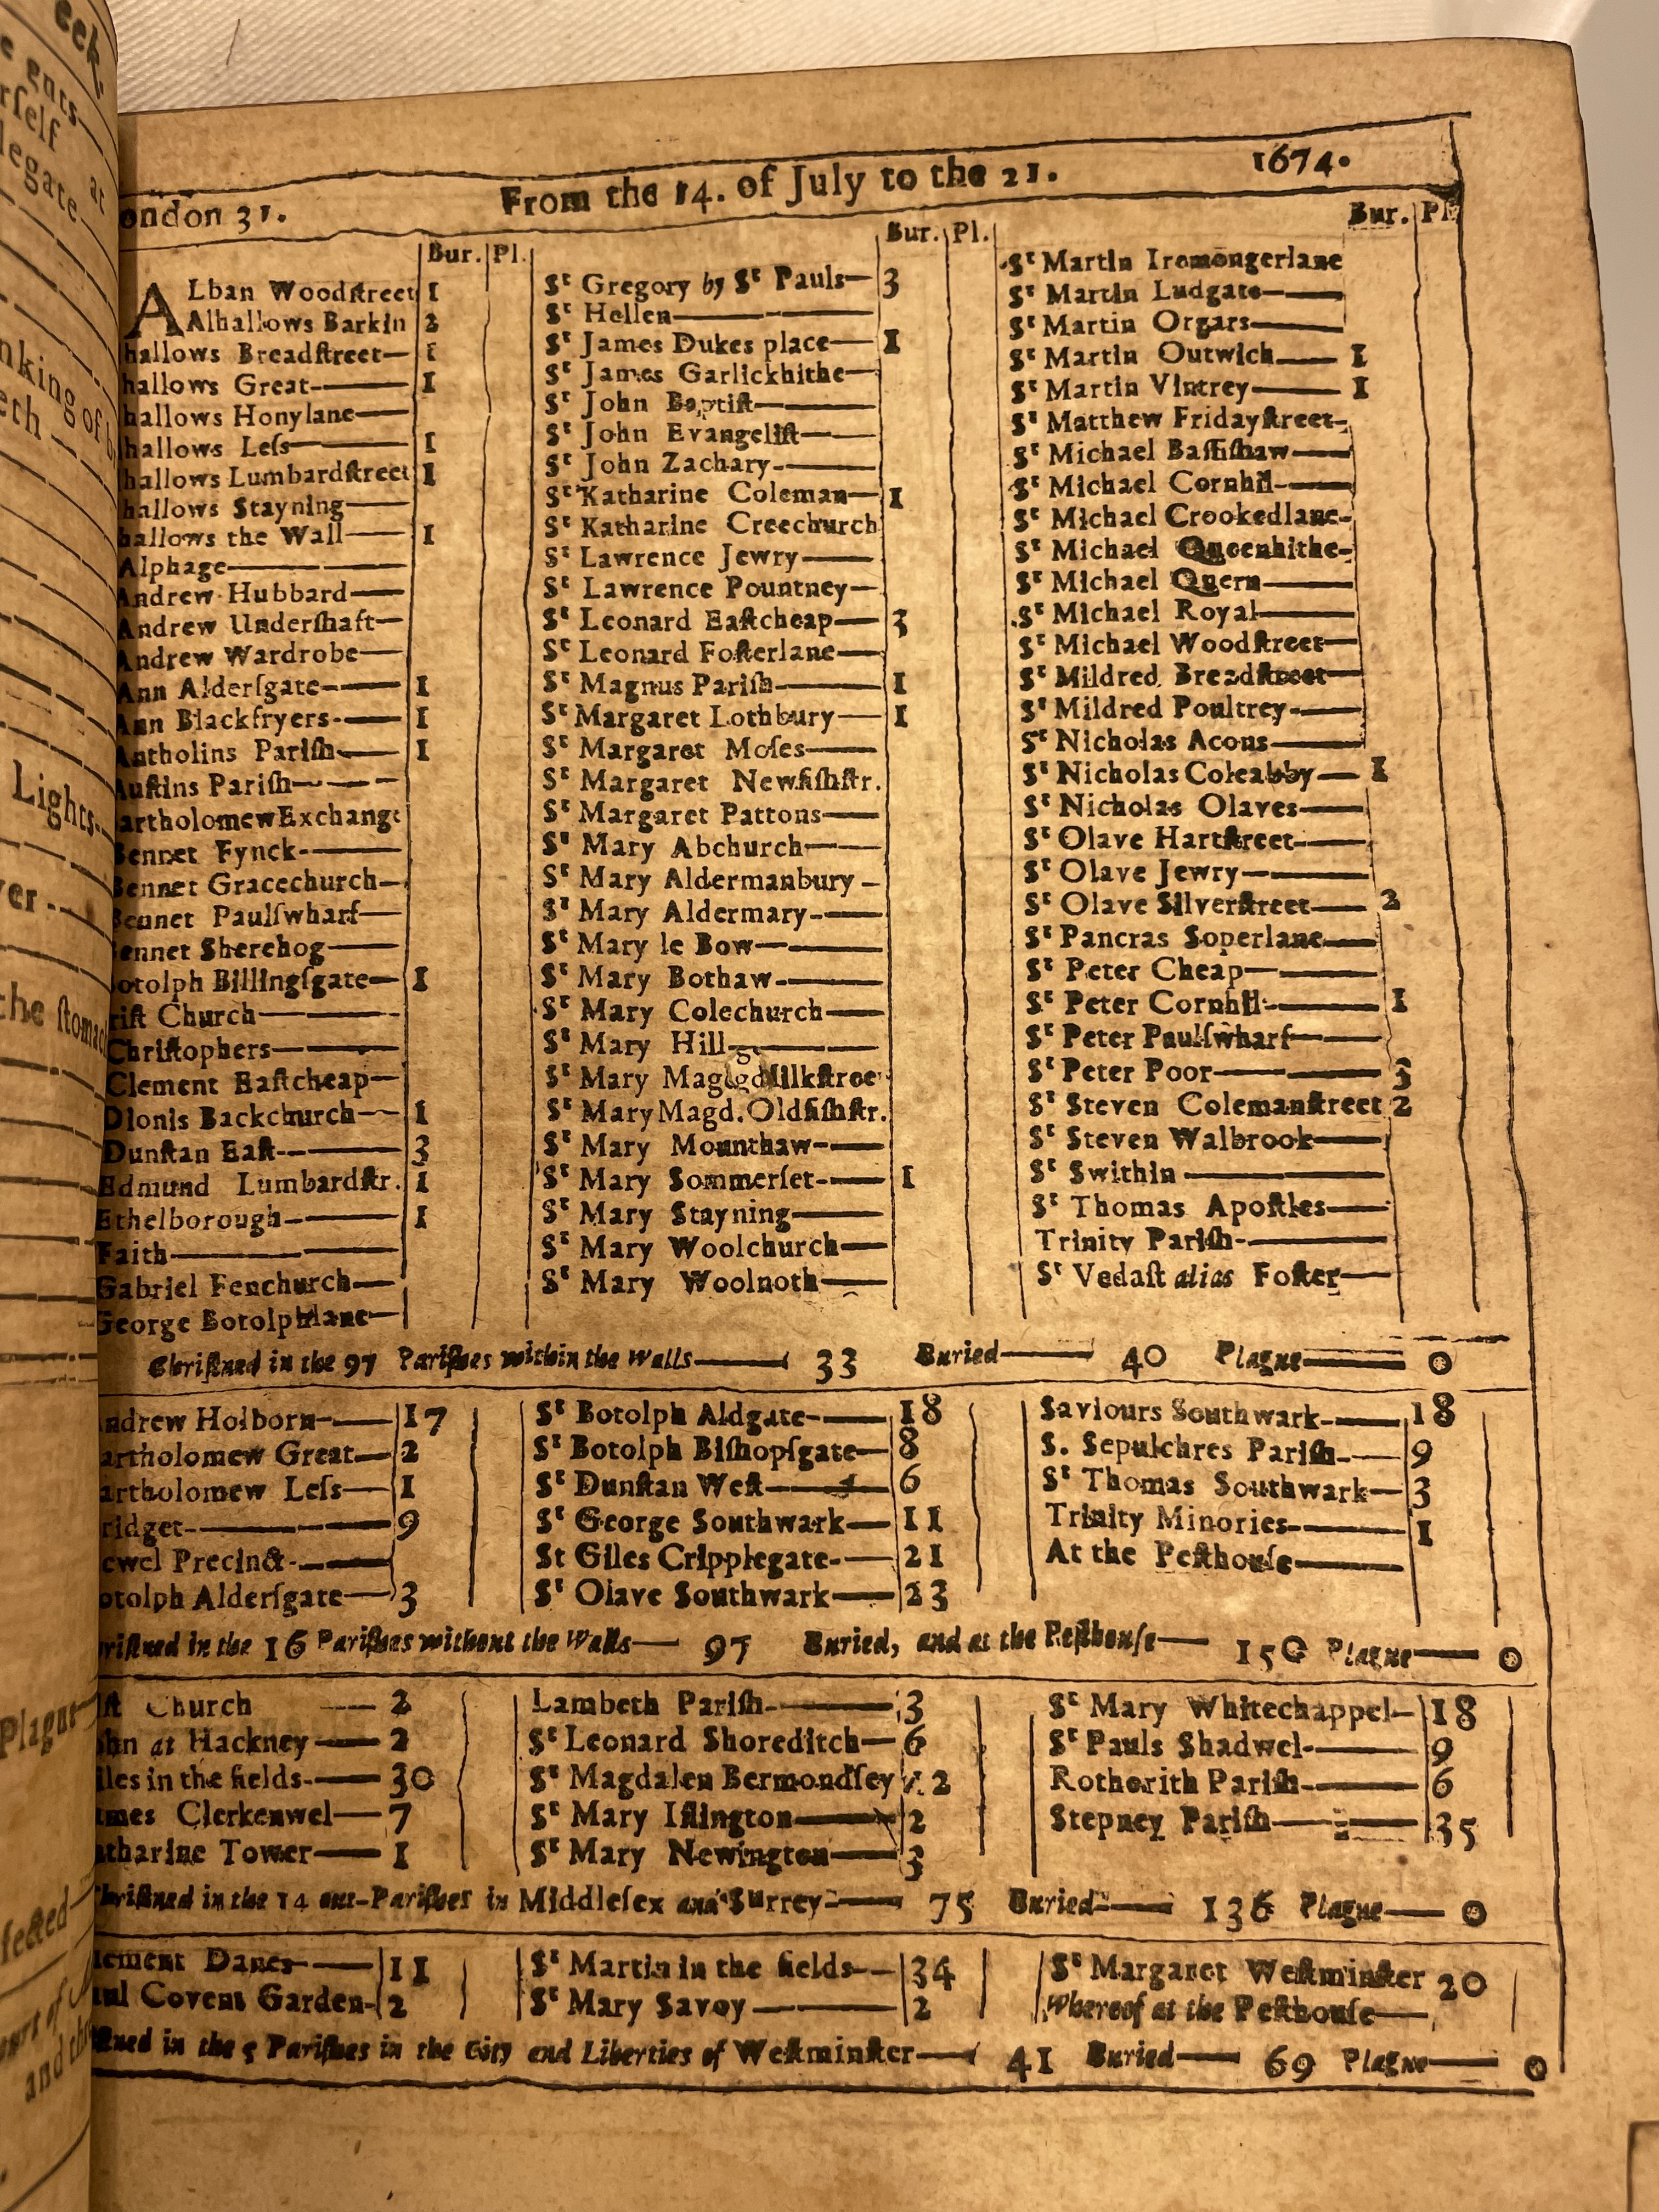 ondon 31. From the 14. of July to the 21. 1674.
Bur. Pl.
ALban Woodſtreet 1
Alhallows Barkin 2
hallows Breadſtreet— 1
hallows Great—— 1
hallows Honylane——
hallows Leſs—— 1
hallows Lumbardſtreet 1
hallows Stayning——
hallows the Wall—— 1
Alphage————
Andrew Hubbard——
Andrew Underſhaft—
Andrew Wardrobe——
Ann Alderſgate—— 1
Ann Blackfryers—— 1
Antholins Pariſh—— 1
Auſtins Pariſh———
artholomewExchange
Bennet Fynck———
Bennet Gracechurch—
Bennet Paulſwharf——
Bennet Sherehog——
Botolph Billingſgate— 1
riſt Church————
Chriſtophers————
Clement Eaſtcheap—
Dionis Backchurch— 1
Dunſtan Eaſt———— 3
Edmund Lumbardſtr. 1
Ethelborough——— 1
Faith————
Gabriel Fenchurch——
George Botolphlane—
Bur. Pl.
Sᵗ Gregory by Sᵗ Pauls— 3
Sᵗ Hellen————
Sᵗ James Dukes place— 1
Sᵗ James Garlickhithe—
Sᵗ John Baptiſt———
Sᵗ John Evangeliſt——
Sᵗ John Zachary———
Sᵗ Katharine Coleman— 1
Sᵗ Katharine Creechurch
Sᵗ Lawrence Jewry——
Sᵗ Lawrence Pountney—
Sᵗ Leonard Eaſtcheap— 3
Sᵗ Leonard Foſterlane—
Sᵗ Magnus Pariſh——— 1
Sᵗ Margaret Lothbury— 1
Sᵗ Margaret Moſes——
Sᵗ Margaret Newfiſhſtr.
Sᵗ Margaret Pattons——
Sᵗ Mary Abchurch——
Sᵗ Mary Aldermanbury –
Sᵗ Mary Aldermary——
Sᵗ Mary le Bow———
Sᵗ Mary Bothaw———
Sᵗ Mary Colechurch——
Sᵗ Mary Hill————
Sᵗ Mary Milkſtree
Sᵗ MaryMagd.Oldfiſhſtr.
Sᵗ Mary Mounthaw——
Sᵗ Mary Sommerſet—— 1
Sᵗ Mary Stayning——
Sᵗ Mary Woolchurch—
Sᵗ Mary Woolnoth——
Bur. Pl.
Sᵗ Martin Iremongerlane
Sᵗ Martin Ludgate——
Sᵗ Martin Orgars——
Sᵗ Martin Outwich—— 1
Sᵗ Martin Vintrey—— 1
Sᵗ Matthew Fridayſtreet-
Sᵗ Michael Baſſiſhaw——
Sᵗ Michael Cornhil——
Sᵗ Michael Crookedlane-
Sᵗ Michael Queenhithe-
Sᵗ Michael Quern——
Sᵗ Michael Royal——
Sᵗ Michael Woodſtreet—
Sᵗ Mildred Breadſtreet—
Sᵗ Mildred Poultrey——
Sᵗ Nicholas Acons——
Sᵗ Nicholas Coleabby— 1
Sᵗ Nicholas Olaves——
Sᵗ Olave Hartſtreet——
Sᵗ Olave Jewry———
Sᵗ Olave Silverſtreet—— 2
Sᵗ Pancras Soperlane——
Sᵗ Peter Cheap———
Sᵗ Peter Cornhil——— 1
Sᵗ Peter Paulſwharf——
Sᵗ Peter Poor———— 3
Sᵗ Steven Colemanſtreet 2
Sᵗ Steven Walbrook——
Sᵗ Swithin————
Sᵗ Thomas Apoſtles——
Trinity Pariſh————
Sᵗ Vedaſt alias Foſter—
Chriſtned in the 97 Pariſhes within the Walls—— 33 Buried—— 40 Plague—— 0
ndrew Holborn—— 17
artholomew Great— 2
artholomew Leſs— 1
ridget———— 9
ewel Precinct——
otolph Alderſgate— 3
Sᵗ Botolph Aldgate—— 18
Sᵗ Botolph Biſhopſgate— 8
Sᵗ Dunſtan Weſt—— 6
Sᵗ George Southwark— 11
St Giles Cripplegate-— 21
Sᵗ Olave Southwark—— 23
Saviours Southwark—— 18
S. Sepulchres Pariſh-— 9
Sᵗ Thomas Southwark— 3
Trinity Minories—— 1
At the Peſthouſe——
riſtned in the 16 Pariſhes without the Walls— 97 Buried, and at the Peſthouſe— 150 Plague—— 0
ſt Church —— 2
ohn at Hackney —— 2
iles in the fields—— 30
ames Clerkenwel— 7
atharine Tower— 1
Lambeth Pariſh——— 3
Sᵗ Leonard Shoreditch— 6
Sᵗ Magdalen Bermondſey 12
Sᵗ Mary Iſlington—— 2
Sᵗ Mary Newington—— 3
Sᵗ Mary Whitechappel— 18
Sᵗ Pauls Shadwel——— 9
Rotherith Pariſh——— 6
Stepney Pariſh——— 35
Chriſtned in the 14 out-Pariſhes in Middleſex and Surrey—— 75 Buried—— 136 Plague—— 0
lement Danes—— 11
aul Covent Garden- 2
Sᵗ Martin in the fields—— 34
Sᵗ Mary Savoy———— 2
Sᵗ Margaret Weſtminſter 20
Whereof at the Peſthouſe—
ſtned in the 5 Pariſhes in the City and Liberties of Weſtminſter—— 41 Buried—— 69 Plague—— 0